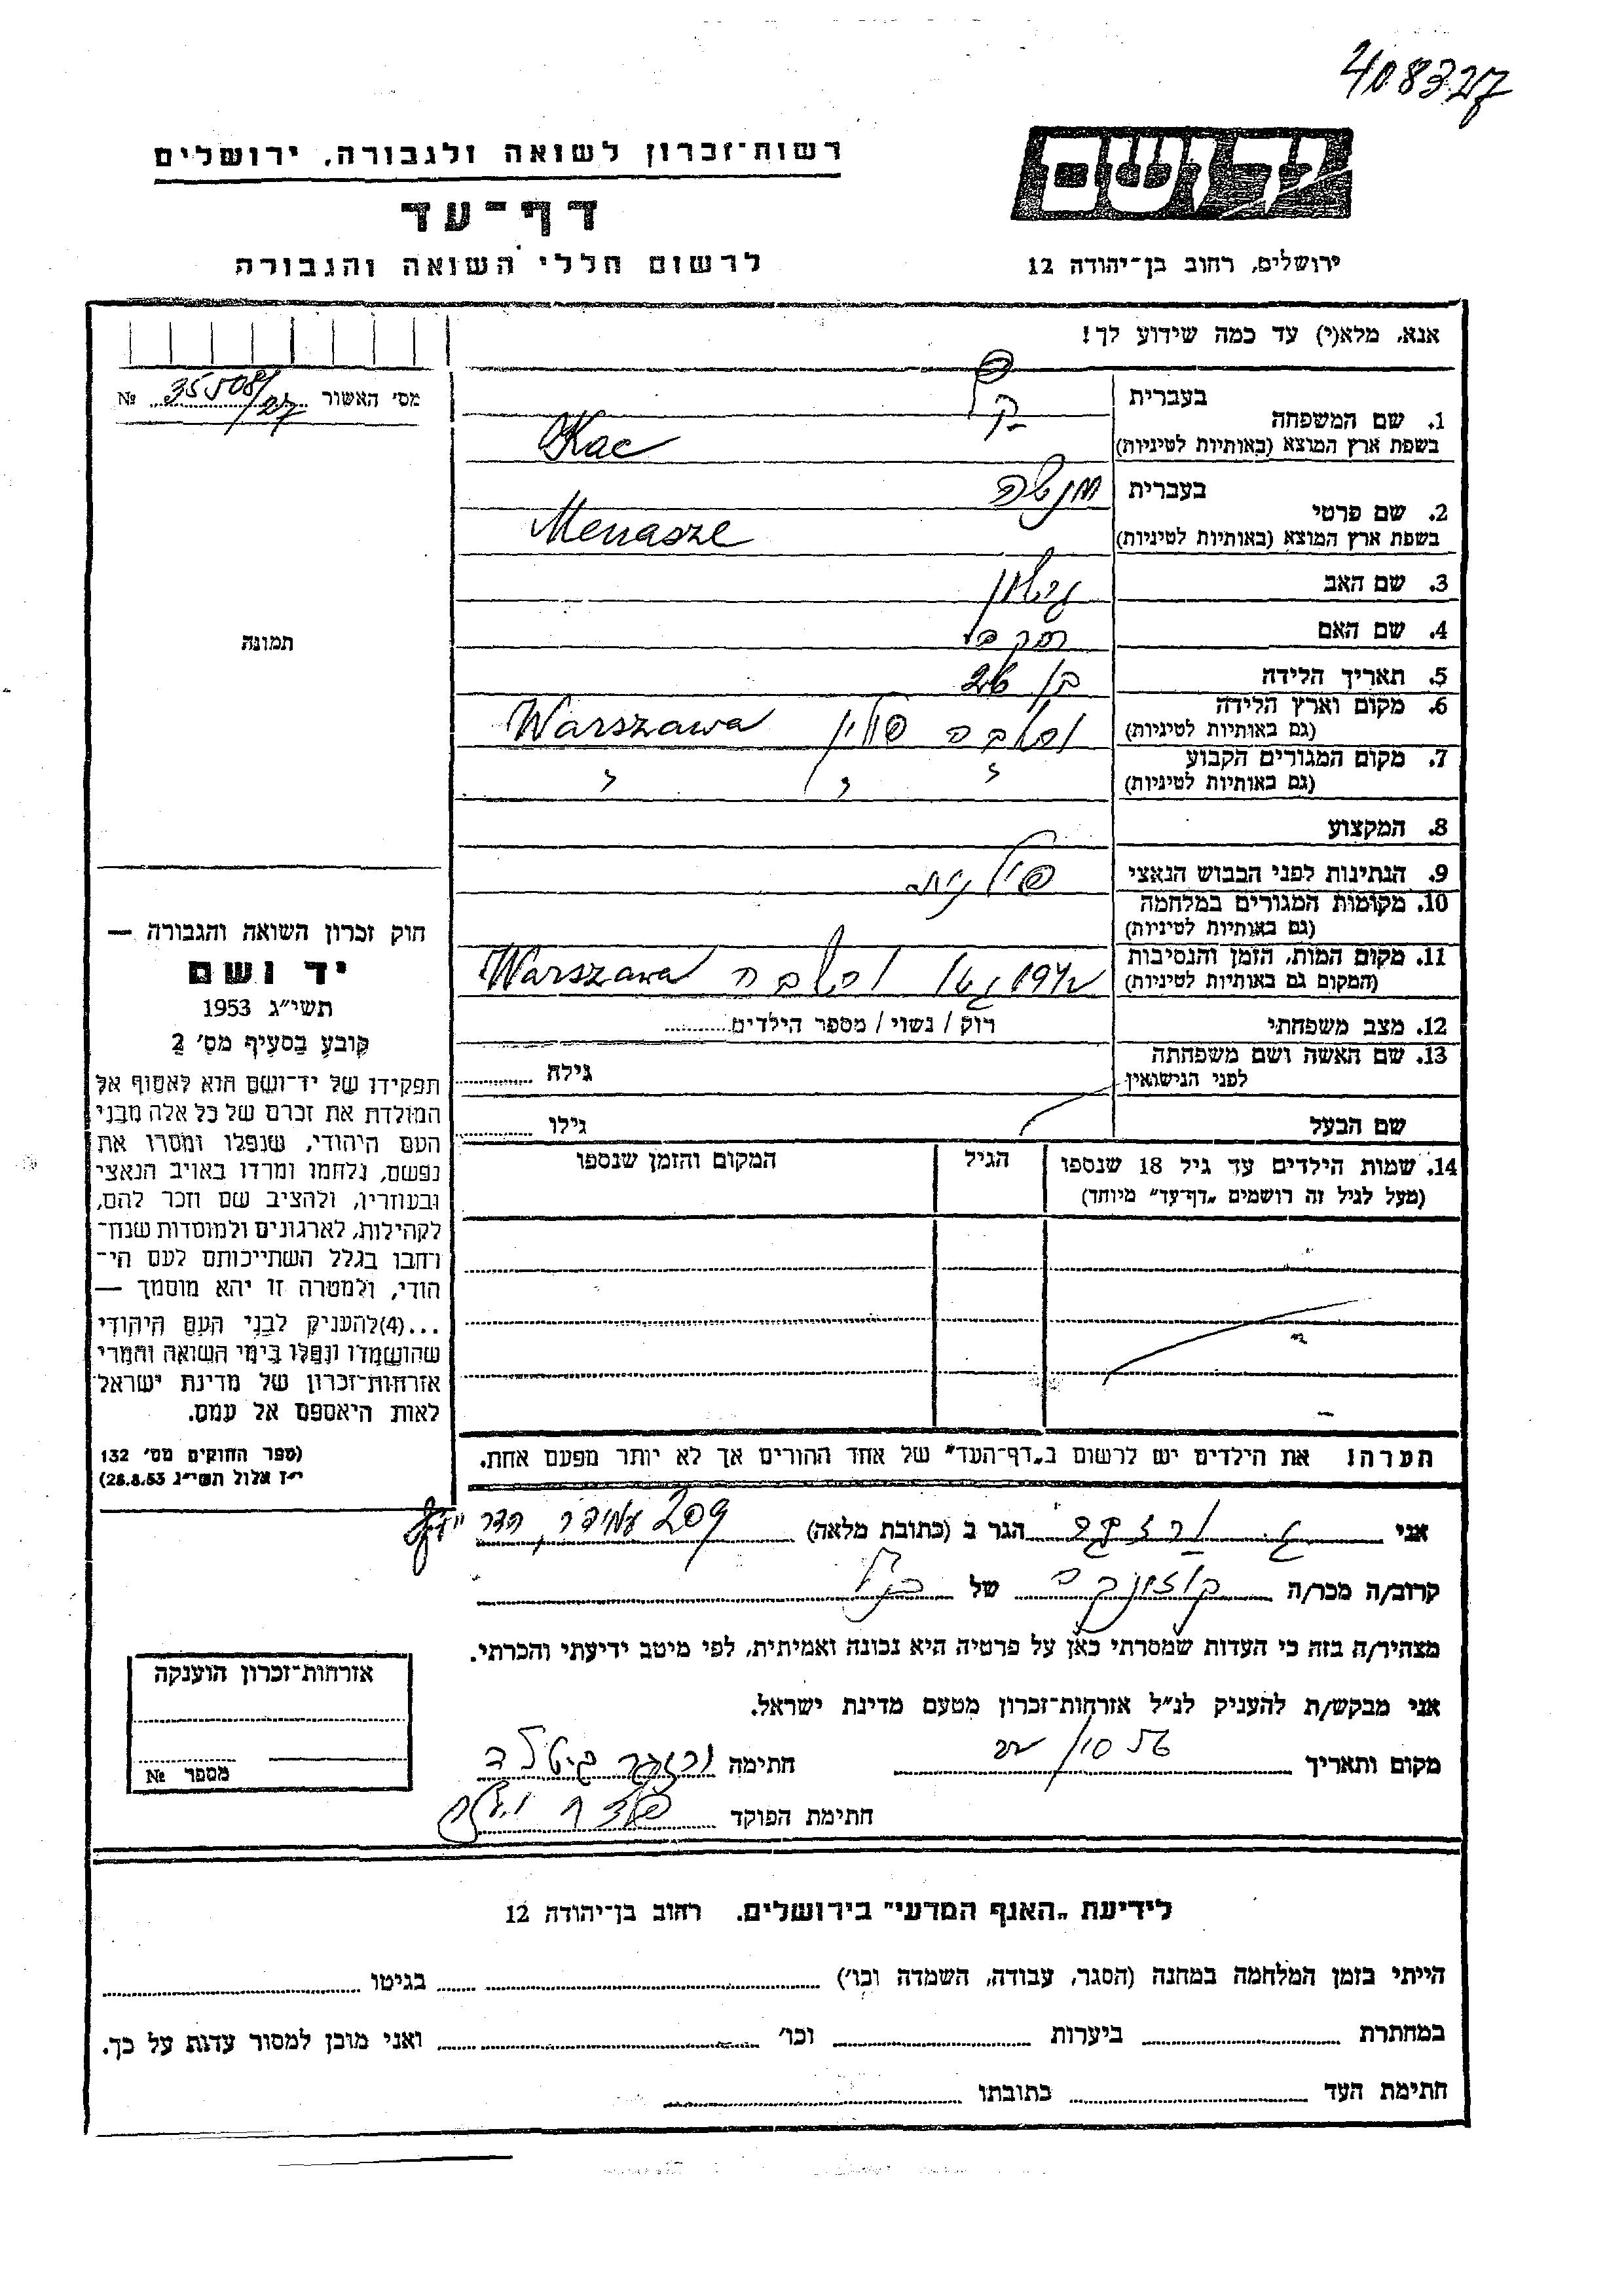 408327
יד ושם
רשות־זכרון לשואה ולגבורה, ירושלים
דף־עד
לרשום חללי השואה והגבורה
ירושלים, רחוב בן־יהודה 12
אנא, מלא(י) עד כמה שידוע לך!
מס׳ האשור 35508/27 №
1. שם המשפחה
בעברית כץ
בשפת ארץ המוצא (באותיות לטיניות) Kac
2. שם פרטי
בעברית מנשה
בשפת ארץ המוצא (באותיות לטיניות) Menasze
3. שם האב
4. שם האם רבקה
5. תאריך הלידה בן 26
6. מקום וארץ הלידה ורשבה פולין Warszawa
(גם באותיות לטיניות)
7. מקום המגורים הקבוע " " "
(גם באותיות לטיניות)
8. המקצוע
9. הנתינות לפני הכבוש הנאצי פולנית
10. מקומות המגורים במלחמה
(גם באותיות לטיניות)
11. מקום המות, הזמן והנסיבות גטו ורשבה Warszawa
(המקום גם באותיות לטיניות)
12. מצב משפחתי רוק / נשוי / מספר הילדים
13. שם האשה ושם משפחתה
לפני הנישואין גילה
שם הבעל גילו
14. שמות הילדים עד גיל 18 שנספו הגיל המקום והזמן שנספו
(מעל לגיל זה רושמים „דף־עד״ מיוחד)
תמונה
חוק זכרון השואה והגבורה —
יד ושם
תשי״ג 1953
קובע בסעיף מס׳ 2
תפקידו של יד־ושם הוא לאסוף אל
המולדת את זכרם של כל אלה מבני
העם היהודי, שנפלו ומסרו את
נפשם, נלחמו ומרדו באויב הנאצי
ובעוזריו, ולהציב שם וזכר להם,
לקהילות, לארגונים ולמוסדות שנח־
רחבו בגלל השתייכותם לעם הי־
הודי, ולמטרה זו יהא מוסמך —
...(4)להעניק לבני העם היהודי
שהושמדו ונפלו בימי השואה והמרי
אזרחות־זכרון של מדינת ישראל
לאות היאספם אל עמם.
(ספר החוקים מס׳ 132
י״ז אלול תשי״ג 28.8.53)
הערה! את הילדים יש לרשום ב„דף־העד״ של אחד ההורים אך לא יותר מפעם אחת.
אני הגר ב (כתובת מלאה) 209 עמידר,
קרוב/ה מכר/ה של
מצהיר/ה בזה כי העדות שמסרתי כאן על פרטיה היא נכונה ואמיתית, לפי מיטב ידיעתי והכרתי.
אני מבקש/ת להעניק לנ״ל אזרחות־זכרון מטעם מדינת ישראל.
מקום ותאריך חתימה
חתימת הפוקד
אזרחות־זכרון הוענקה
מספר №
לידיעת „האגף המדעי״ בירושלים, רחוב בן־יהודה 12
הייתי בזמן המלחמה במחנה (הסגר, עבודה, השמדה וכו׳) בגיטו
במחתרת ביערות וכו׳ ואני מוכן למסור עדות על כך.
חתימת העד כתובתו